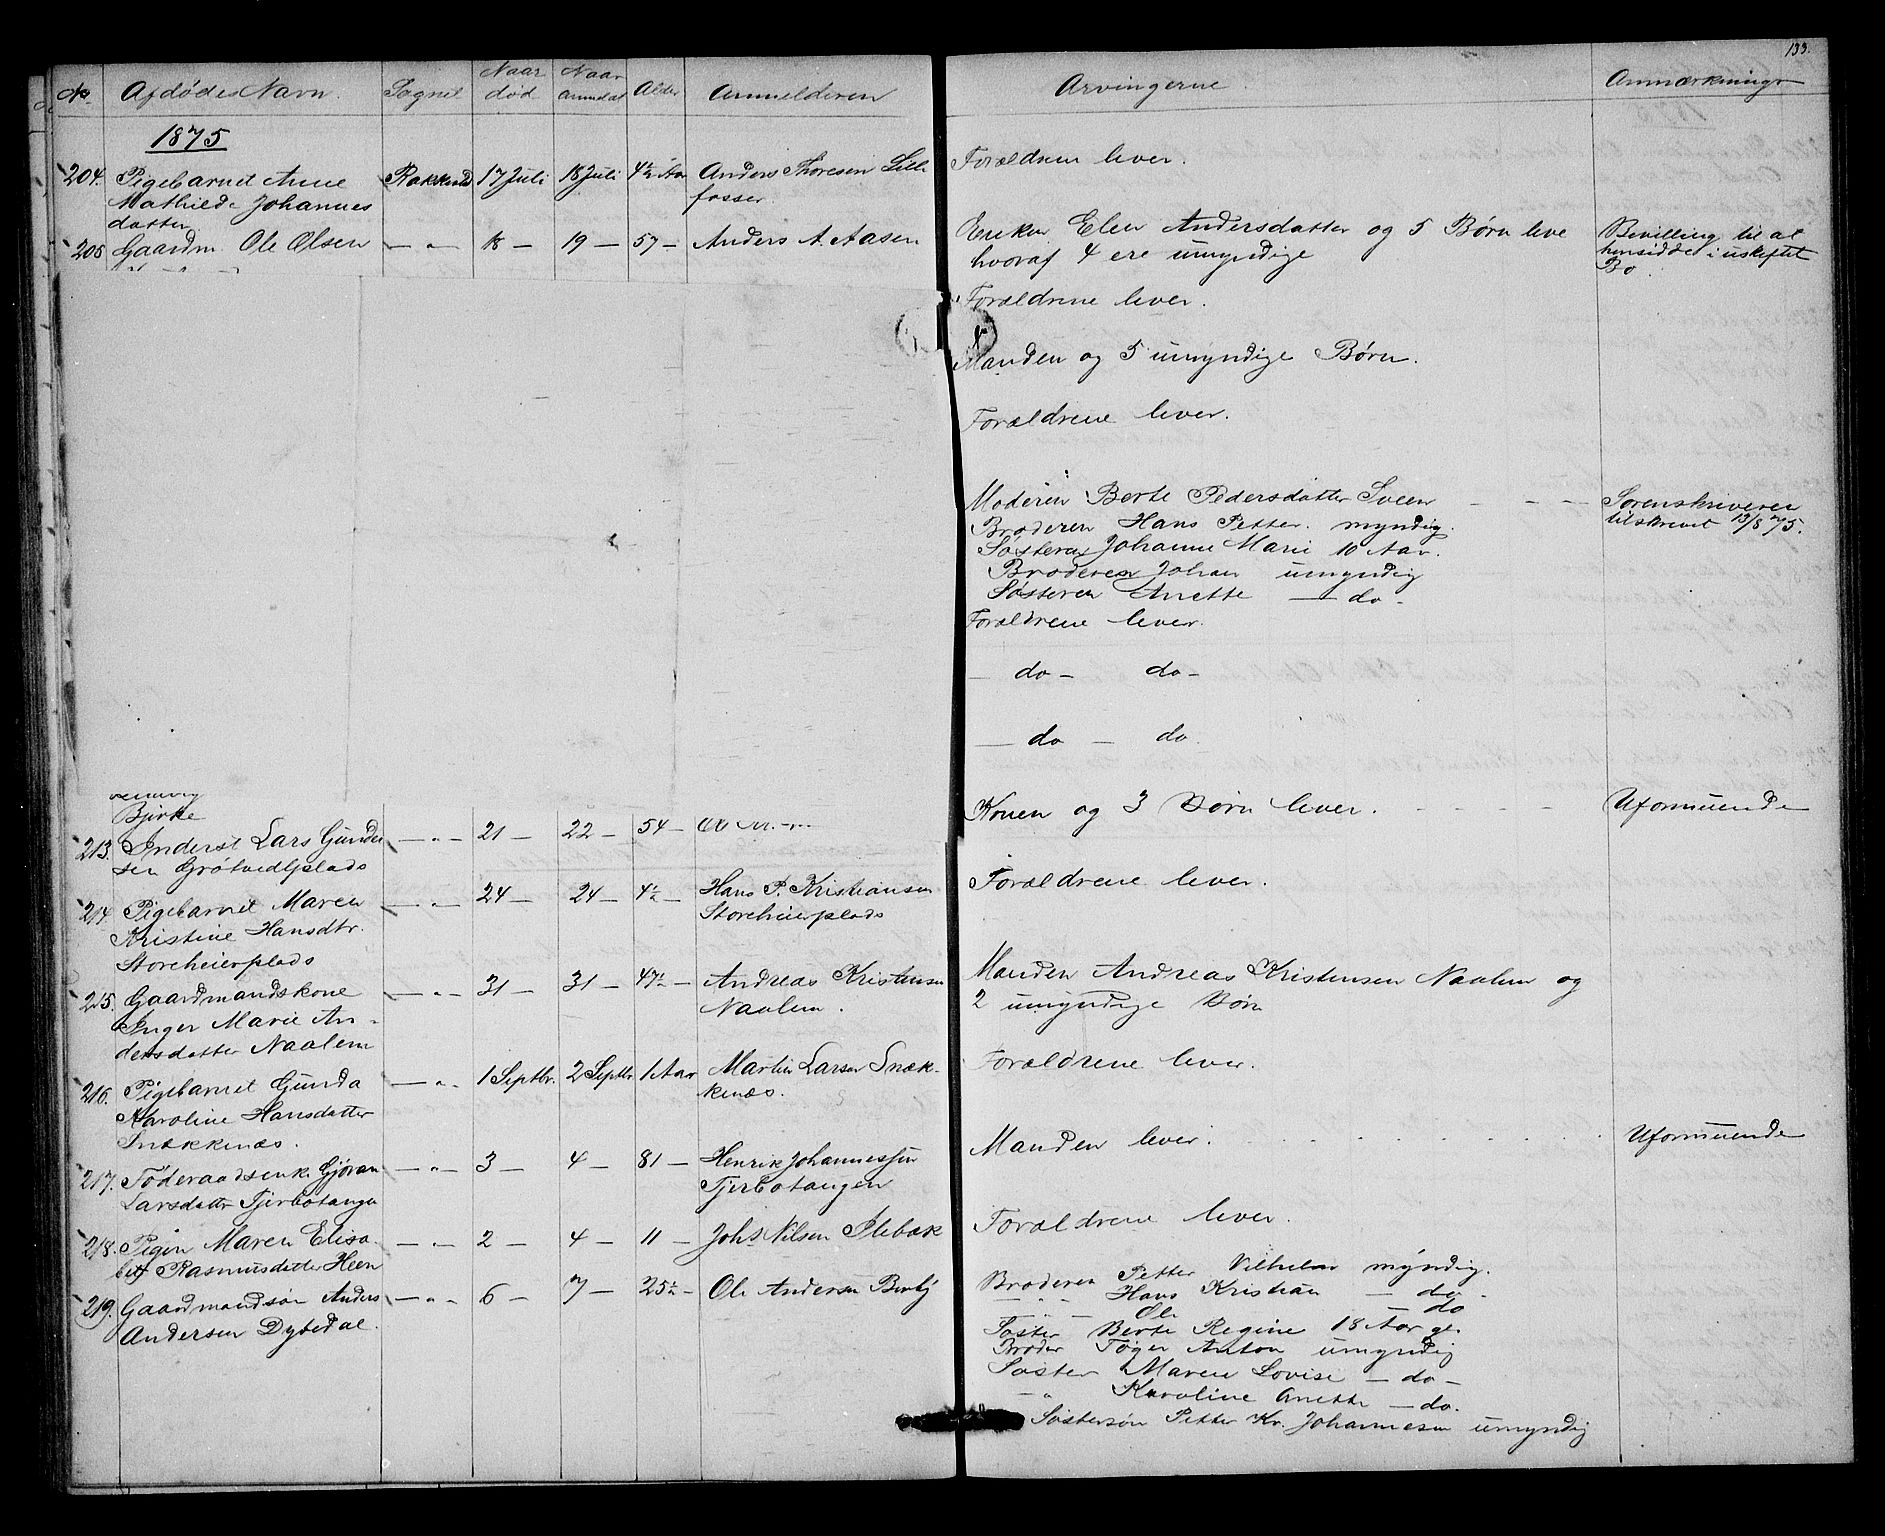 133.
No. Afdødes Navn. Sognet Naar død Naar anmeldt Alder Anmelderen Arvingerne. Anmærkninger
1875
204. Pigebarnet Anne Rakkestad 17 Juli 18 Juli 4½ Aar Anders Thoresen Lille Forældren lever.
Mathilde Johannes fosser
datter
205 Gaardm Ole Olsen — " — 18 — 19 — 57 — Anders A. Aasen Enken Elen Andersdatter og 5 Børn leve Bevilling til at
hvoraf 4 ere umyndige hensidde i uskiftet
Bo
Forældrene lever.
Manden og 5 umyndige Børn.
Forældrene lever.
Moderen Berte Pedersdatter Sveen — — — Sorenskriveren
Broderen Hans Petter. myndig. tilskrevet 13/8 75.
Søsteren Johanne Marie 10 Aar.
Broderen Johan umyndig
Søsteren Anette — do -
Forældrene lever.
— do — do —
— do — do.
Bjirke
Konen og 3 Børn lever. Uformuende
213. Inderst Lars Gunder — " — 21 — 22 — 54 —
sen Grøtvedtplads
214. Pigebarnet Maren — " — 24 — 24 — 4½ — Hans P. Kristiansen Forældrene lever.
Kristine Hansdtr. Storeheierplads
Storeheierplads
215. Gaardmandskone — " — 31 — 31 — 47½ — Andreas Kristensen Manden Andreas Kristensen Naalum og
Inger Marie An- Naalum. 2 umyndige Børn
dersdatter Naalum
216. Pigebarnet Gunda — " — 1 Septbr. 2 Septbr. 1 Aar Martin Larsen Snæk- Forældrene lever.
Karoline Hansdatter kenæs.
Snækkenæs.
217. Føderaadsenke Gjøran — " — 3 — 4 — 81 — Henrik Johannessen Manden lever. Uformuende
Larsdatter Tjerbotangen Tjerbotangen
218. Pigen Maren Elisa- — " — 2 — 4 — 11 — Johs Nilsen Flebæk Forældrene lever.
bet Rasmusdatter Heen
219. Gaardmandsøn Anders — " — 6 — 7 — 25½ — Ole Andersen Broderen Petter Vilhelm myndig.
Andersen Dybedal. — " — Hans Kristian — do -
— " — Ole — do
Søster Berte Regine 18 Aar gl.
Broder Anton umyndig
Søster Maren Lovise — do —
— " Karoline Anette — do.
Søstersøn Petter Kr. Johannesen umyndig